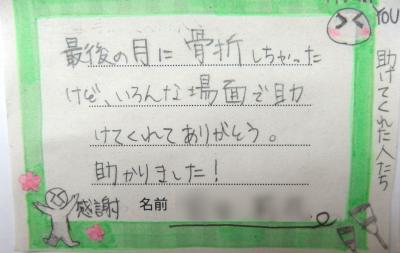 YOU
助けてくれた人たち
最後の月に骨折しちゃった
けど、いろんな場面で助
けてくれてありがとう。
助かりました!
感謝 名前